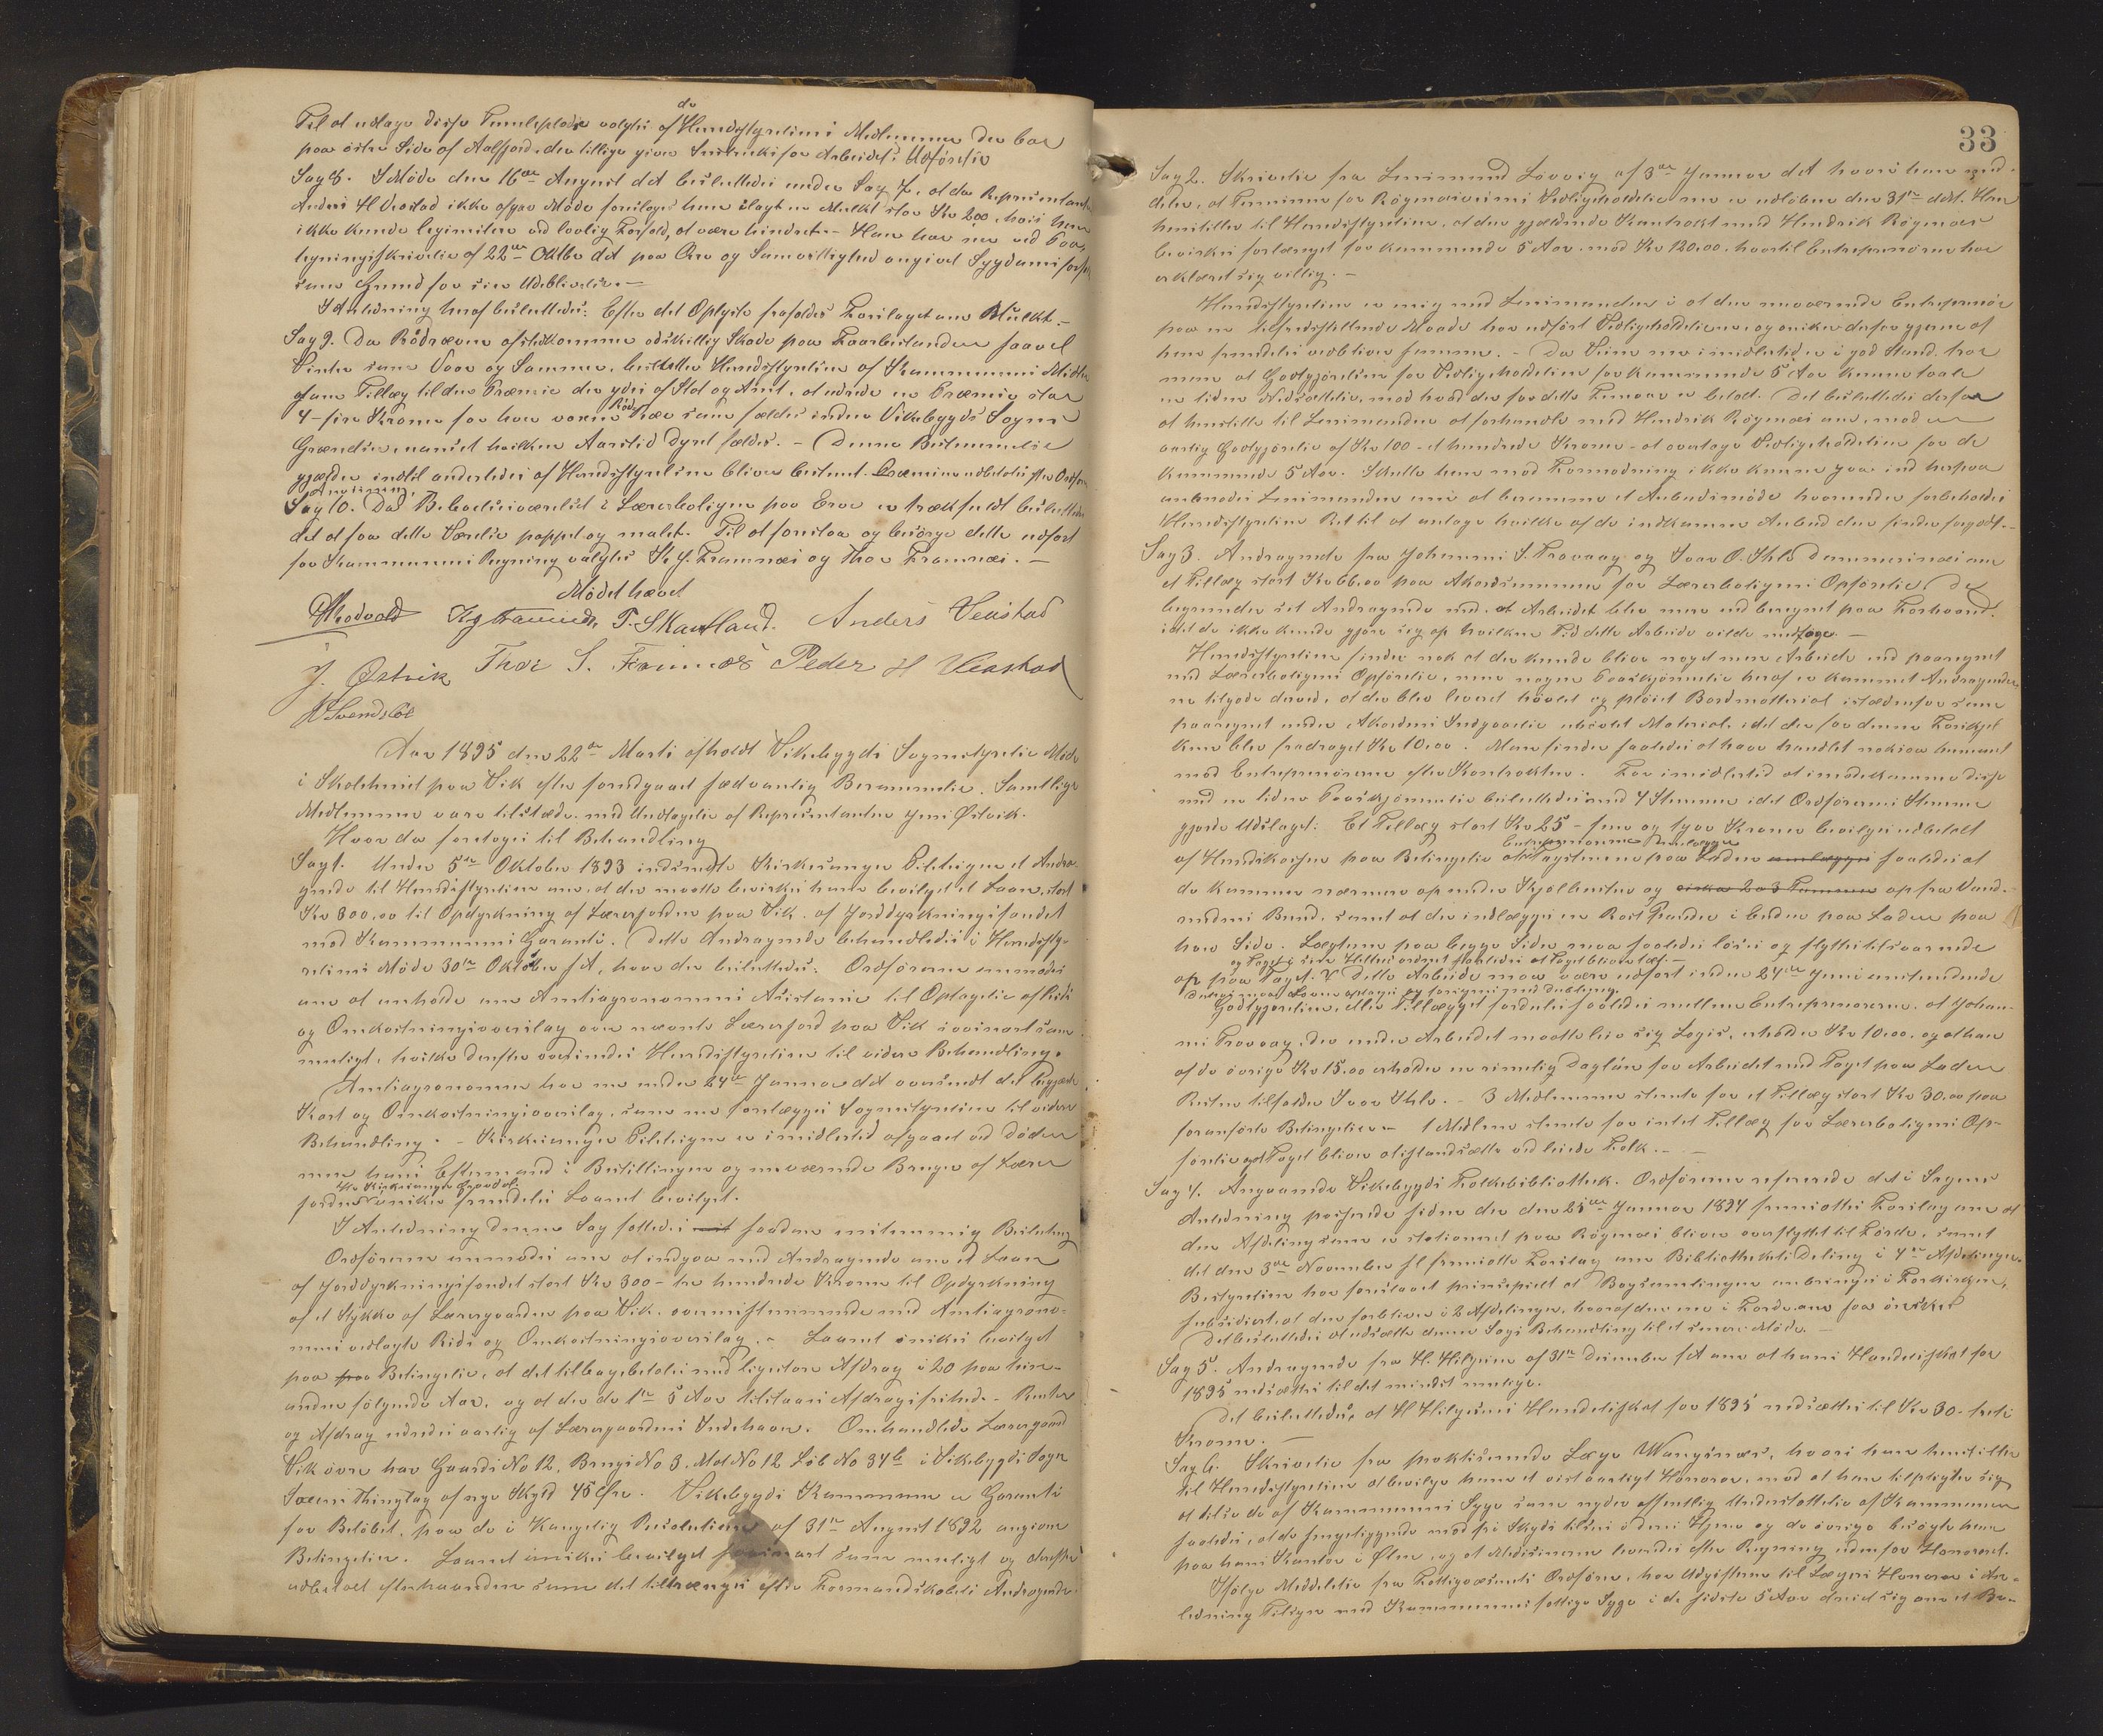 Til at udtage disse Tunelsplads valgtes de af Herredsstyrelsens Medlemmer der bor
paa östre Side af Aalfjord, der tillige giver Instruks for Arbeidets Udförelse
Sag 8. I Möde den 16de August dA besluttedes under Sag 7, at da Repræsentanten
Anders H Veastad ikke afgav Möde foreslages ham ilagt en Mulkt stor Kr 2.00, hvis han
ikke kunde legimitere ved lovlig Forfald, at være hindret. Han har nu ved Fore-
lægningsskrivelse af 22de Oktbr dA paa Ære og Samvittighed angivet Sygdomsforfald
som Grund for sin Udeblivelse. —
I Anledning heraf besluttedes: Efter det Oplyste frafaldes Forslaget om Mulkt. —
Sag 9. Da Rödræven afstedkommer adskillig Skade paa Faarbestanden saavel
Vinter som Vaar og Sommer, beslutter Herredsstyrelsen af Kommunens Midler
som Tillæg til den Præmie der ydes af Stat og Amt, at udrede en Præmie stor
4 - fire Kroner for hver voxen Rödræv som fældes inden Vikebygds Sogns
Grændser, uanset hvilken Aarstid Dyret fældes. - Denne Bestemmelse
gjælder indtil anderledes af Herredsstyrelsen bliver bestemt. Præmien udbetales efter Ordförerens
Anvisning.
Sag 10. Da Beboelsesværelset i Lærerboligen paa Eroe er trækfuldt besluttedes
det at faa dette Værelse pappet og malet. Til at forestaa og besörge dette udfört
for Kommunens Regning valgtes K. J. Framnæs og Thor Framnæs. —
Mödet hævet
T. S. Kartland. Anders Veastad
J. Østvik Thor S. Framnæs Peder H Veastad
Svendsböe
Aar 1895 den 22de Marts afholdt Vikebygds Sognestyrelse Möde
i Skolehuset paa Vik efter forudgaaet sædvanlig Berammelse. Samtlige
Medlemmer vare tilstæde med Undtagelse af Repræsentanten Jens Östvik.
Hvor da foretoges til Behandling
Sag 1. Under 5te Oktober 1893 indsendte Kirkesanger Eilehigen et Andra-
gende til Herredsstyrelsen om, at der maatte bevirkes ham bevilget et Laan, stort
Kr 300,00 til Opdyrkning af Lærerjorden paa Vik, af Jorddyrkningsfondet
mod Kommunens Garanti. Dette Andragende behandledes i Herredssty-
relsens Möde 30te Oktober sA, hvor der besluttedes: Ordföreren anmodes
om at anholde om Amtsagronomens Assistance til Optagelse af Rids
og Omkostningsoverslag over nævnte Lærerjord paa Vik saasnart som
muligt, hvilke derefter oversendes Herredsstyrelsen til videre Behandling.
Amtsagronomen har nu under 24de Januar dA oversendt det begjærte
Kart og Omkostningsoverslag, som nu forelægges Sognestyrelsen til videre
Behandling. - Kirkesanger Eilehigen er imidlertid afgaaet ved Döden
men hans Eftermand i Bestillingen og nuværende Bruger af Lærer
jorden Hr. Kirkesanger önsker fremdeles Laanet bevilget.
I Anledning denne Sag fattedes saadan enstemmig Beslutning
Ordföreren anmodes om at indgaa med Andragende om et Laan
af Jorddyrkningsfondet stort Kr 300 - tre hundrede Kroner til Opdyrkning
af et Stykke af Lærergaarden paa Vik, overensstemmende med Amtsagrono-
mens vedlagte Rids og Omkostningsoverslag. - Laanet önskes bevilget
paa Betingelse, at det tilbagebetales med ligestore Afdrag i 20 paa hin-
anden fölgende Aar, og at der de 1ste 5 Aar tilstaaes Afdragsfrihed. - Renter
og Afdrag udredes aarlig af Lærergaardens Indehaver. Omhandlede Lærergaard
Vik övre har Gaards No 12. Brugs No 3. Mat No 12 Löb No 34b i Vikebygds Sogn
Skaanevik Thinglag af ny Skyld 45 Öre. Vikebygds Kommune er Garanti
for Belöbet, paa de i Kongelig Resolution af 31te August 1892 angivne
Betingelser. Laanet önskes bevilget saasnart som muligt og derefter
udbetalt efterhaanden som det tiltrænges efter Formandskabets Andragende.
33
Sag 2. Skrivelse fra Lensmand Lövvig af 3die Januar dA hvori han med-
deler, at Terminen for Rögnæsveiens Vedligeholdelse nu er udloben den 31te ddM. Han
henstiller til Herredsstyrelsen, at den gjældende Kontrakt med Hendrik Rögnæs
bevirkes forlænget for kommende 5 Aar. mod Kr 120,00. hvortil Entreprenören har
erklæret sig villig. —
Herredsstyrelsen er enig med Lensmanden i at den nuværende Entreprenör
paa en tilfredsstillende Maade har udfört Vedligeholdelsen, og önsker derfor gjerne at
han fremdeles vedbliver samme. - Da Veien nu imidlertid er i god Stand, tror
man at Godtgjörelsen for Vedligeholdelsen for kommende 5 Aar kunne taale
en liden Nedsættelse, mod hvad der for dette Femaar er betalt. Det besluttedes derfor
at henstille til Lensmanden at forhandle med Hendrik Rögnæs om, mod en
aarlig Godtgjörelse af Kr 100 - et hundrede Kroner - at overtage Vedligeholdelsen for de
kommende 5 Aar. Skulle han mod Formodning ikke kunne gaa ind herpaa
anmodes Lensmanden om at beramme et Anbudsmöde hvorunder forbeholdes
Herredsstyrelsen Ret til at antage hvilke af de indkomne Anbud den finder for godt. —
Sag 3. Andragende fra Johannes S. Traavaag og Ivar O. Ihle Dommersnæs om
et Tillæg stort Kr 66,00 paa Akordsummen for Lærerboligens Opförelse. De
begrunder sit Andragende med, at Arbeidet blev mere end beregnet paa Forhaand.
idet de ikke kunde gjöre sig op hvilken Tid dette Arbeide vilde medtage. —
Herredsstyrelsen finder nok at der kunde blive noget mere Arbeide end paaregnet
ved Lærerboligens Opförelse, men nogen Paaskjönnelse heraf er kommet Andragerne
tilgode derved, at der blev leveret hövlet og plöiet Bordmateriale istedenfor som
paaregnet under Akordens Indgaaelse uhövlet Materiale, idet der for denne Forskjel
kun blev fradraget Kr 10,00. Man finder saaledes at have handlet noksaa humant
mod Entreprenörerne efter Kontrakten. For imidlertid at imödekomme disse
med en liden Paaskjönnelse besluttedes med 4 Stemmer idet Ordförerens Stemme
gjorde Udslaget: Et Tillæg stort Kr 25 - fem og tyve Kroner bevilges udbetalt
af Herredskassen paa Betingelse at Entreprenörerne Tagstenene paa Laden omlægges saaledes at
de kommer nærmere op under Kjölhesten og cirka 2 a 3 Tommer op fra Vand-
nedens Bund, samt at der indlægges en Rost i Enden paa Laden paa
hver Side. Lægterne paa begge Sider maa saaledes löses og flyttes tilsvarende
op paa Taget. Dette Arbeide maa være udfört inden 24de Juni anstundende
Godtgjörelsen, eller Tillægget fordeles saaledes mellem Entreprenörerne, at Johan-
nes Traavaag, der under Arbeidet maatte leie sig Logis, erholder Kr 10,00, og at han
af de övrige Kr 15,00 erholder en rimelig Daglön for Arbeidet med Taget paa Laden
Resten tilfalder Ivar Ihle. - 3 Medlemmer stemte for et Tillæg stort Kr 30,00 paa
foranförte Betingelser. - 1 Medlem stemte for intet Tillæg for Lærerboligens Op-
förelse og Taget bliver at istandsætte ved leiede Folk. —
Sag 4. Angaaende Vikebygds Folkebibliothek. Ordföreren refererede det i Sagens
Anledning passerede siden der den 25de Januar 1894 fremsattes Forslag om at
den Afdeling som er stationeret paa Rögnæs bliver overflyttet til Förde, samt
det den 3die November sA fremsatte Forslag om Bibliothekets Deling i 4re Afdelinger.
Bestyrelsen har foreslaaet principielt at Bogsamlingen anbringes i Forkirken,
subsidiært, at den forbliver i 2 Afdelinger, hvoraf den ene i Förde, om saa önskes
Det besluttedes at udsætte denne Sags Behandling til et senere Möde.
Sag 5. Andragende fra H. Hilgsen af 31te December fA om at hans Handelsskat for
1895 nedsættes til det mindst mulige.
Det besluttedes, at H Hilgsens Handelsskat for 1895 nedsættes til Kr 30 - treti
Kroner. —
Sag 6. Skrivelse fra praktiserende Læge Wangsnæs, hvori han henstiller
til Herredsstyrelsen at bevilge ham et vist aarligt Honorar, mod at han tilpligter sig
at tilse de af Kommunens Syge som nyder offentlig Understöttelse af Kommunen
saaledes, at de sengeliggende mod fri Skyds tilsees i deres Hjem og de övrige besögte ham
paa hans Kontor i Ölen, og at Medicinerne leveredes efter Regning udenfor Honoraret.
Ifölge Meddelelse fra Fattigvæsenets Ordförer, har Udgifterne til Lægens Honorar i An-
ledning Tilsyn med Kommunens fattige Syge i de sidste 5 Aar dreiet sig om et Be-